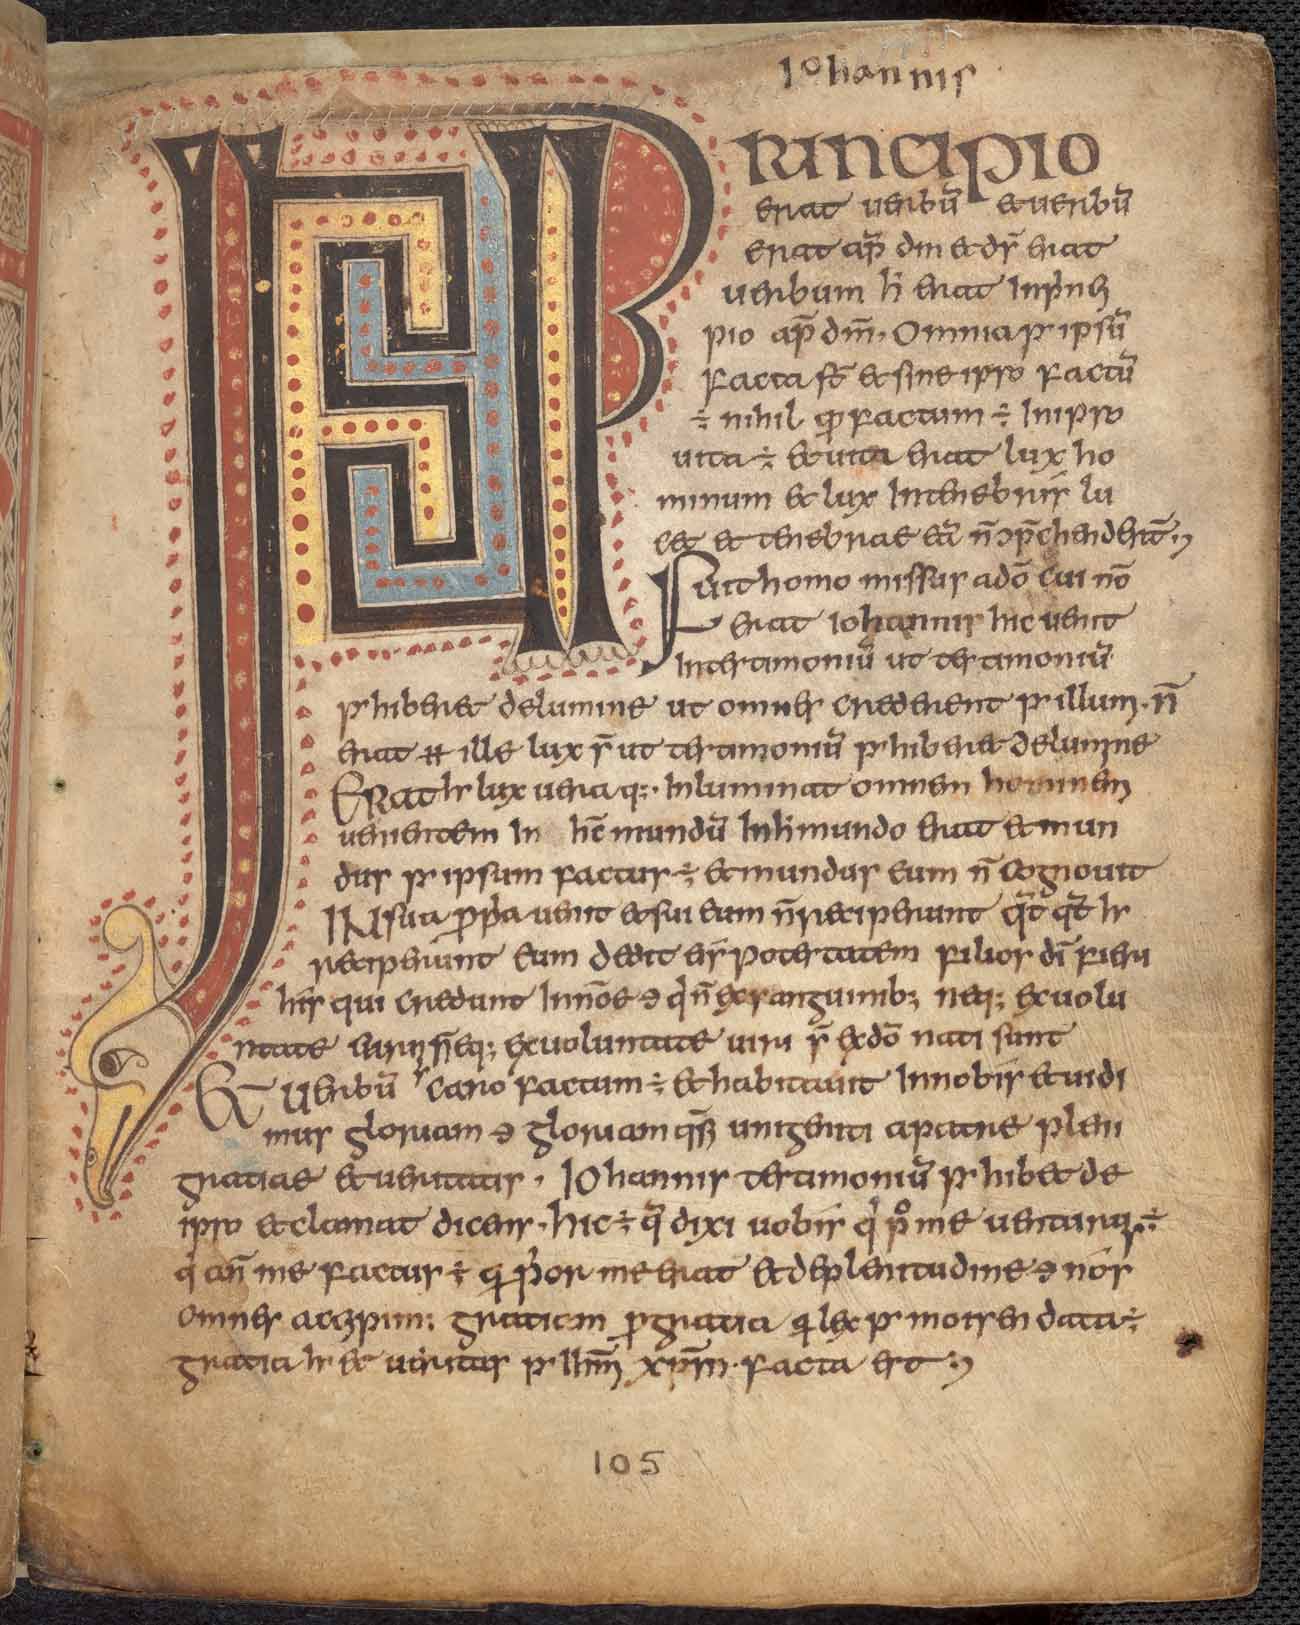 Iohannis
INPrincipio
erat uerbū et uerbū
erat ap̄ dm̄ et ds̄ erat
uerbum h̄ erat inprinci
pio ap̄ dm̄. Omnia ꝑ ipsū
facta st̄ et sine ipso factū
÷ nihil qd̄ factum ÷ Inipso
uita ÷ et uita erat lux ho
minum et lux Intenebris lu
cet et tenebrae eā n̄ ɔp̄chenderūt
Fuit homo missus adō cui nō
erat Iohannis hic uenit
Intestimoniū ut testimoniū
ꝑhiberet delumine ut omnes crederent ꝑ illum. n̄
erat ille lux s̄ ut testimoniū ꝑhiberet delumine
Erat lux uera q; Inluminat omnem hominem
uenientem In hc̄ mundū Inh̄ mundo erat et mun
dus ꝑ ipsum factus ÷ et mundus eum n̄ cognouit
INsua ꝓp̄a uenit et sui eum n̄ reciperunt
reciperunt eum dedit eis̄ potestatem filios dī fieri
his̄ qui credunt Innōe qī n̄ exsanguinib; neq; exuolu
ntate carnis n̄eq; exuoluntate uiri s̄ exdō nati sunt
Et Uerbū caro factum ÷ et habitauit Innobis et uidi
mus gloriam gloriam unigeniti apatre pleni
gratiae et ueritatis. Iohannis testimoniū ꝑhibet de
ipso et clamat dicens. hic ÷ dixi uobis qī me uenturus ÷
an̄ me factus ÷ prior me erat et deplenitudine nōs
omnes accipim; gratiam ꝓgratia lex ꝑ moisen data ÷
gratia et ueritas ꝑ ihm̄ xp̄m. facta est
105